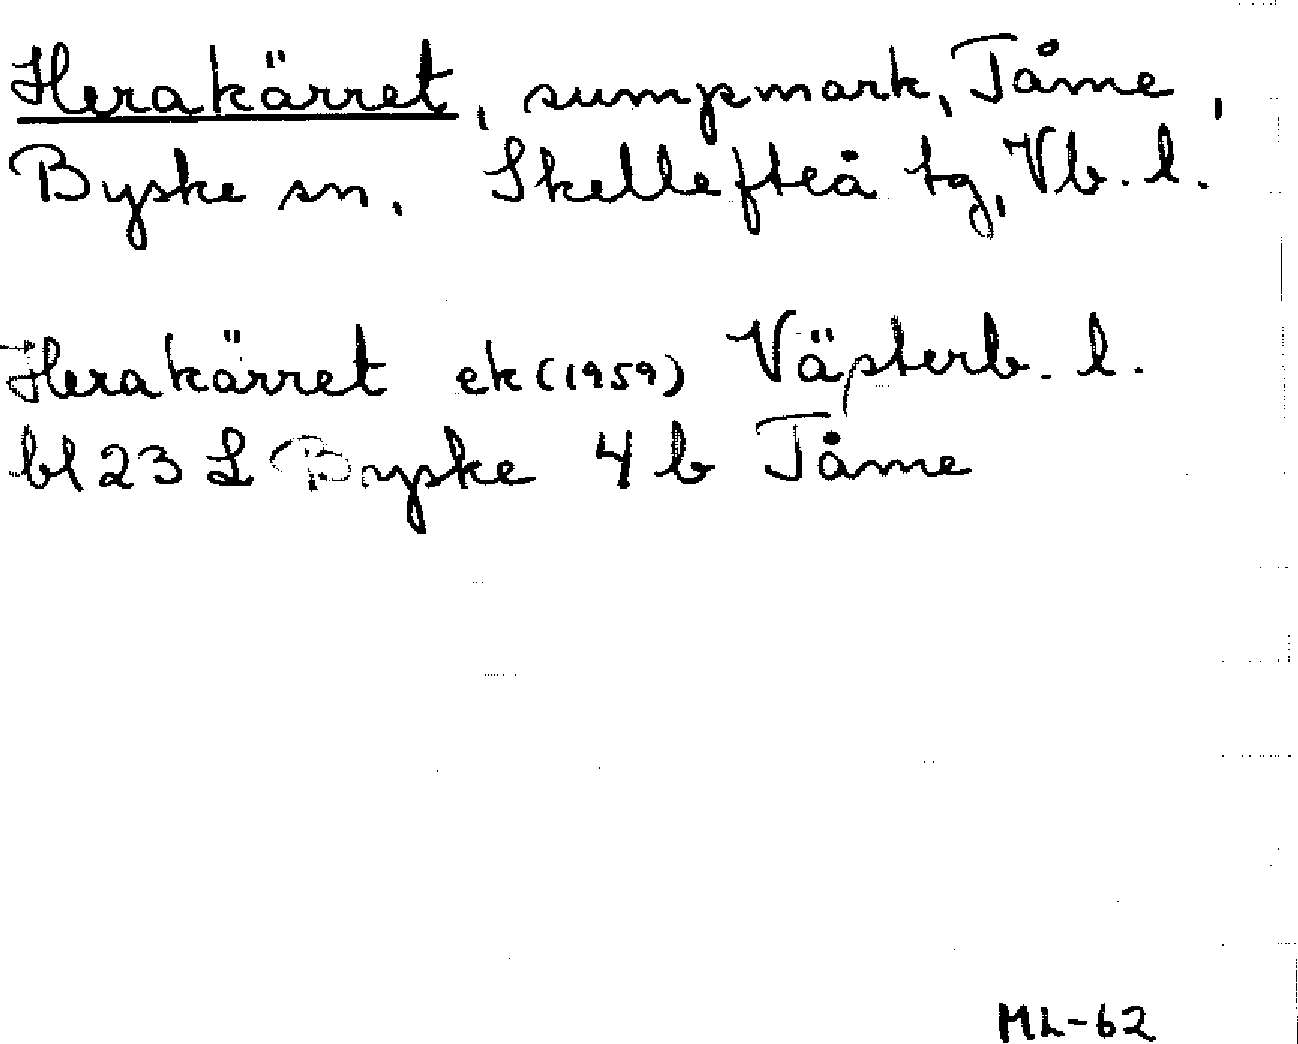 Herakärret, sumpmark, Tåme,
Byske sn. Skellefteå tg, Vb. l.
Herakärret ek (1959) Västerb. l.
bl 23 L Byske 4 b Tåme
ML-62